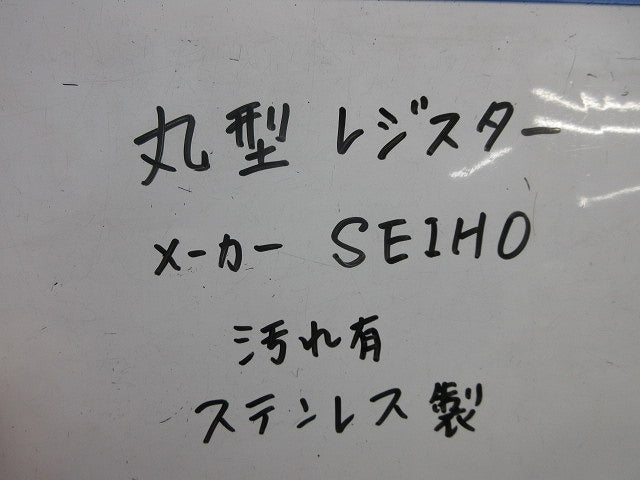 丸型 レジスター
メーカー SEIHO
汚れ有
ステンレス製